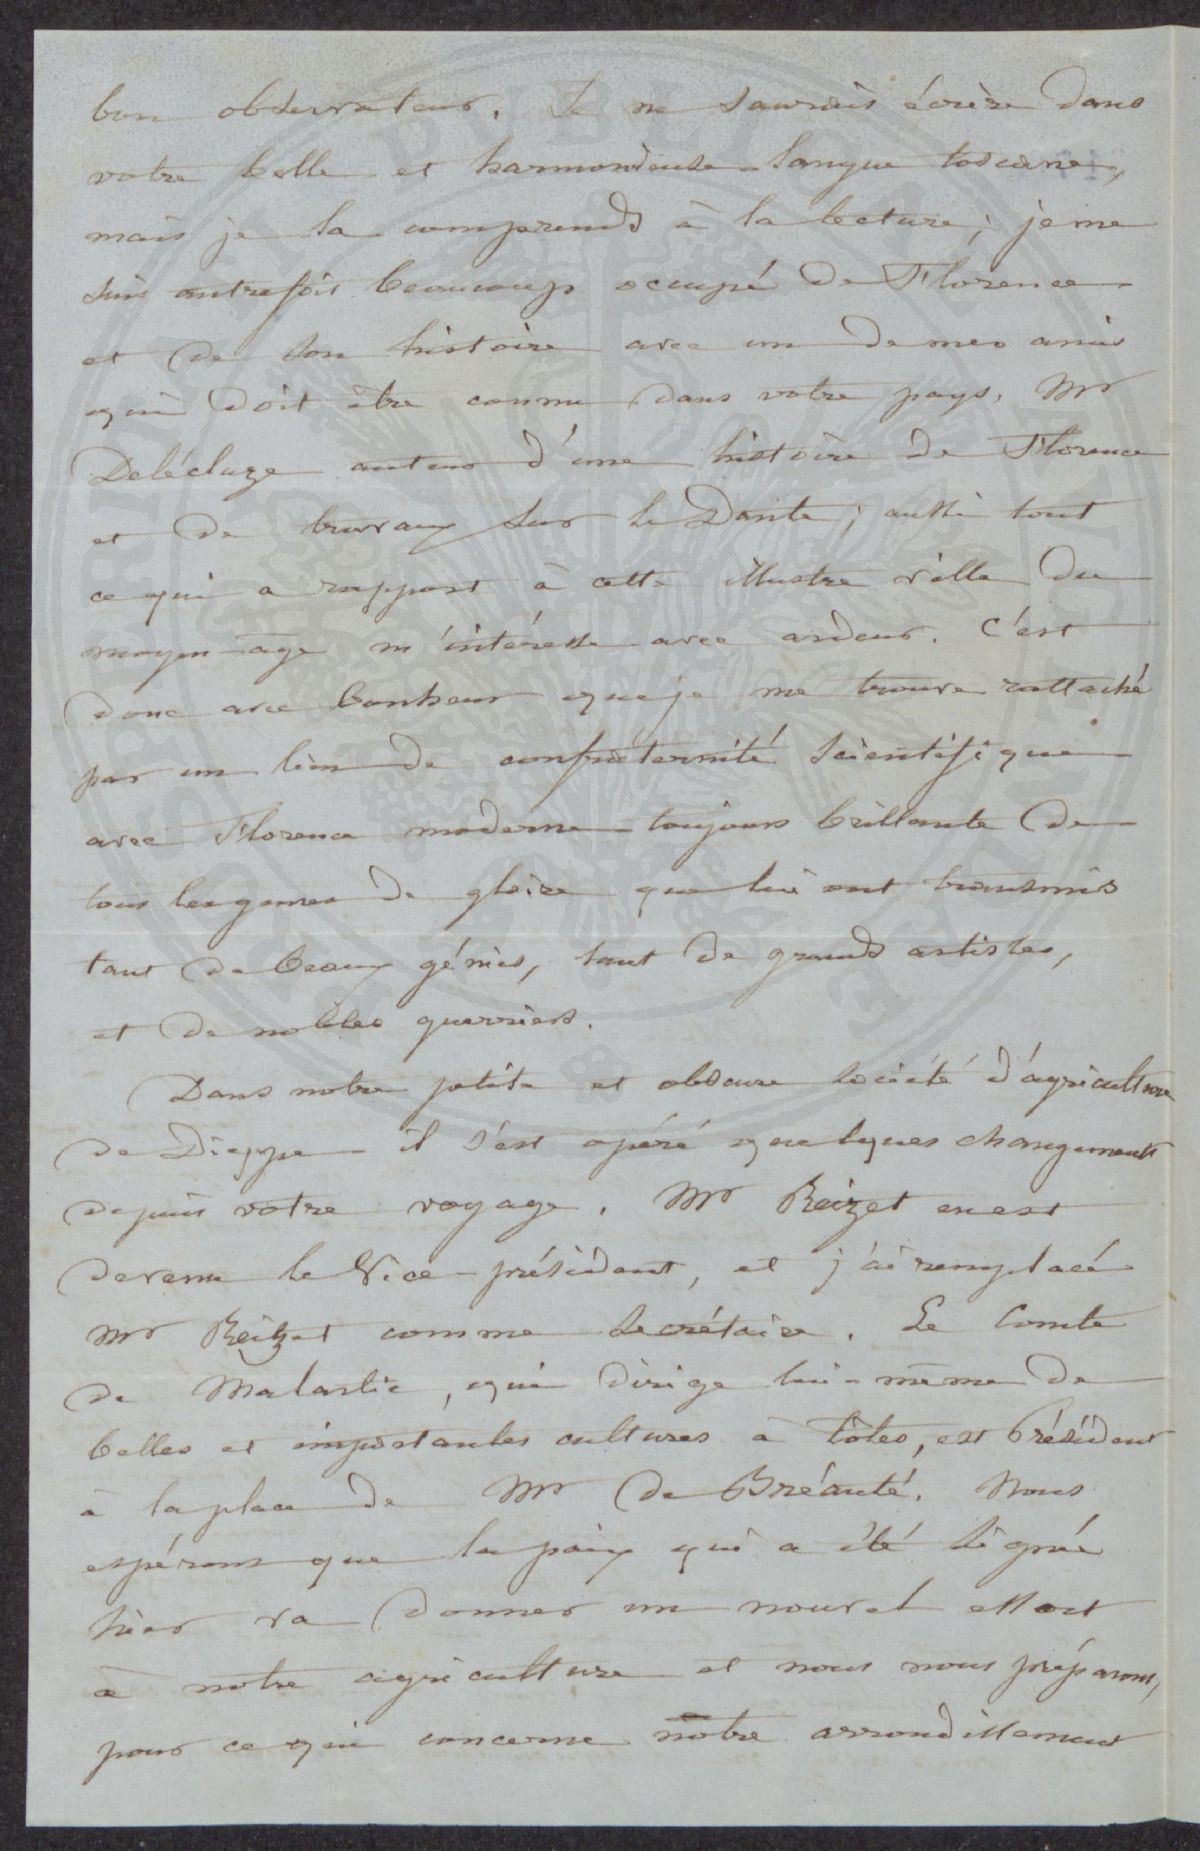 bon observateur. Je ne saurais écrire dans
votre belle et harmonieuse langue toscane,
mais je la comprends à la lecture; je me
suis autrefois beaucoup occupé de Florence
et de son histoire avec un de mes amis
qui doit être connu dans votre pays, Mr
Delécluze auteur d'une histoire de Florence
et de travaux sur le Dante; aussi tout
ce qui a rapport à cette illustre ville du
moyen-âge m'intéresse avec ardeur. C'est
donc avec bonheur que je me trouve rattaché
par un lien de confraternité scientifique
avec Florence moderne toujours brillante de
tous les genres de gloire que lui ont transmis
tant de beaux génies, tant de grands artistes,
et de nobles guerriers.
Dans notre petite et obscure société d'agriculture
de Dieppe il s'est opéré quelques changements
depuis votre voyage. Mr Reizet en est
devenu le Vice-président, et j'ai remplacé
Mr Reizet comme secrétaire. Le Comte
de Malartic, qui dirige lui-même de
belles et importantes cultures à Tôtes, est Président
à la place de Mr de Bréauté. Nous
espérons que la paix qui a été signée
hier va donner un nouvel essort
à notre agriculture et nous nous préparons,
pour ce qui concerne notre arrondissement